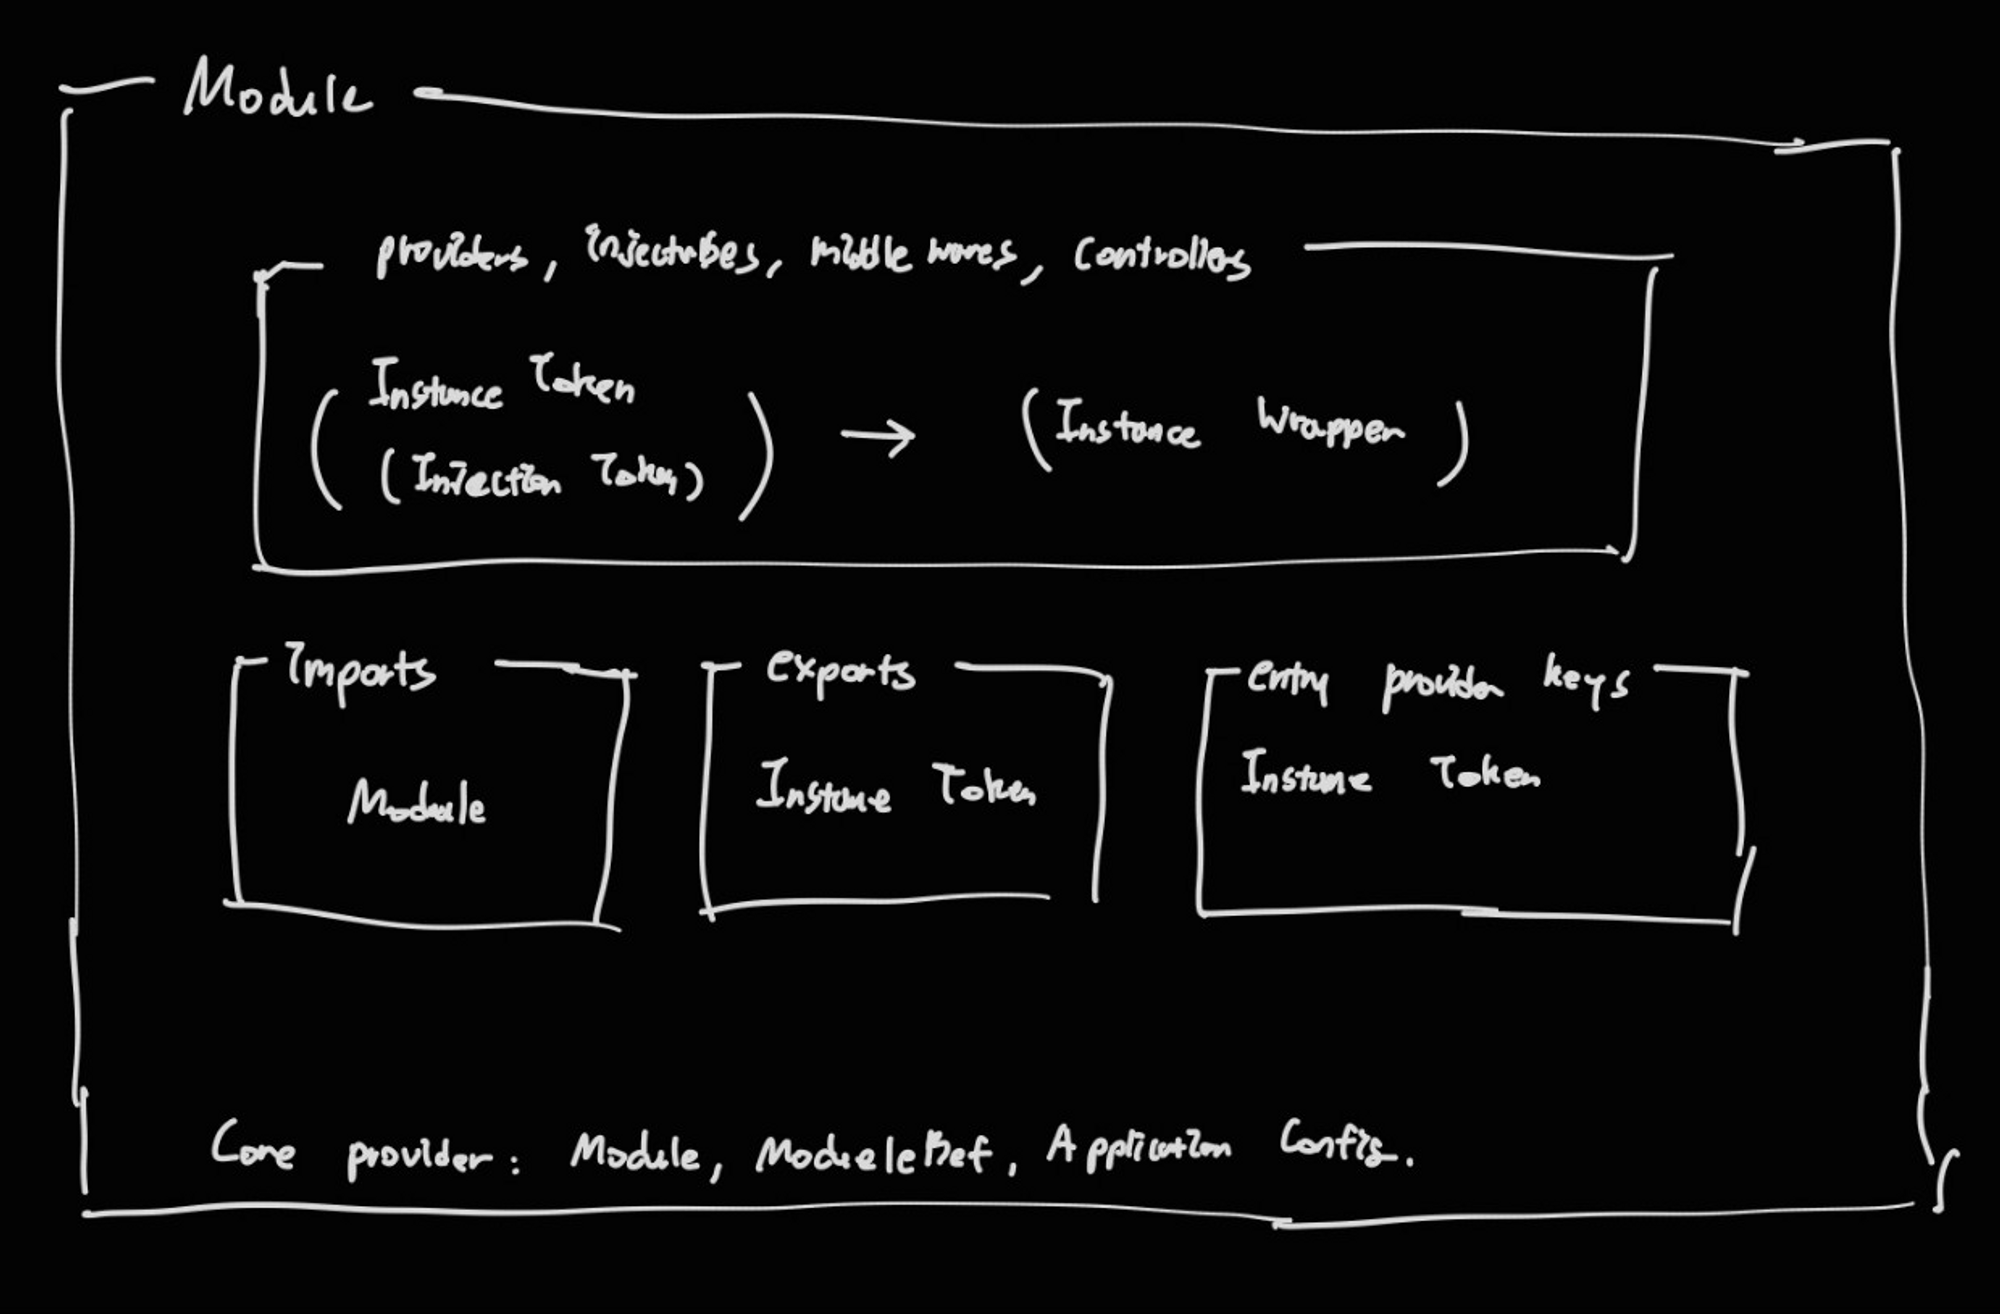 Module
providers, injectables, middlewares, controllers
Instance Token
(Injection Token)
(Instance Wrapper)
Imports
Module
exports
Instance Token
entry provider keys
Instance Token
Core provider: Module, ModuleRef, Application Config.